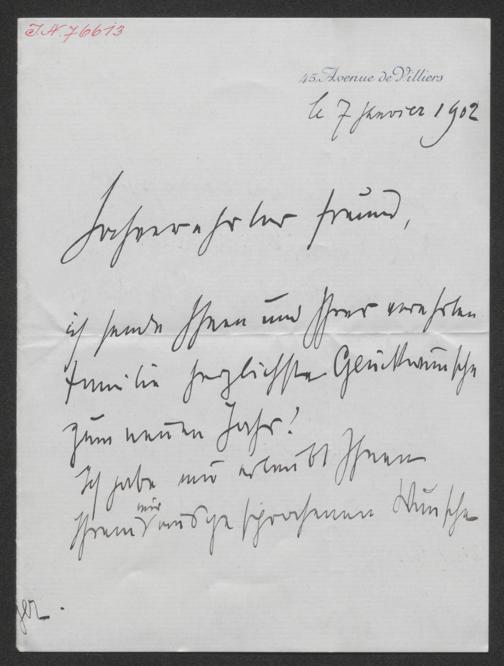 J.N. 76613
45. Avenue de Villiers
le 7 Janvier 1902
Hochverehrter Freund,
ich sende Ihnen und Ihrer verehrten
Familie herzlichste Glückwünsche
zum neuen Jahr!
Ich habe mir erlaubt Ihnen
Ihrem mir ausgesprochenen Wunsche